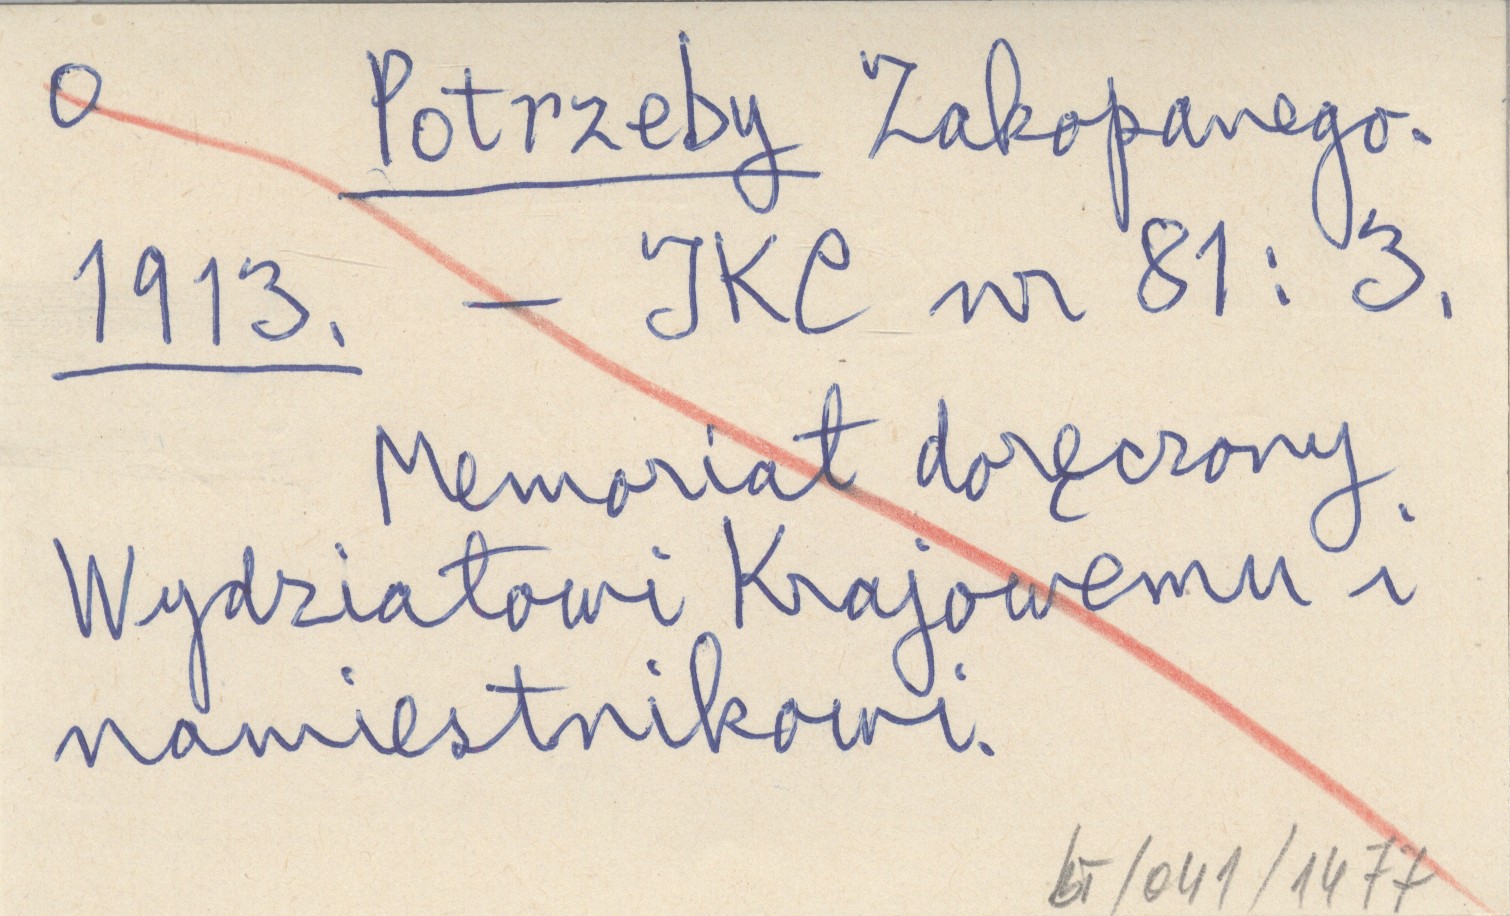 O Potrzeby Zakopanego.
1913. — IKC nr 81 : 3.
Memoriał doręczony
Wydziałowi Krajowemu i
namiestnikowi.
/041/1477